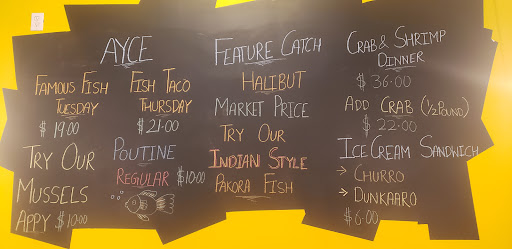 AYCE
FAMOUS FISH
TUESDAY
$19.00
FISH TACO
THURSDAY
$21.00
TRY OUR
MUSSELS
APPY $10.00
POUTINE
REGULAR $10.00
FEATURE CATCH
HALIBUT
MARKET PRICE
TRY OUR
INDIAN STYLE
PAKORA FISH
CRAB & SHRIMP
DINNER
$36.00
ADD CRAB (1/2 POUND)
$22.00
ICE CREAM SANDWICH
→ CHURRO
→ DUNKAARO
$6.00